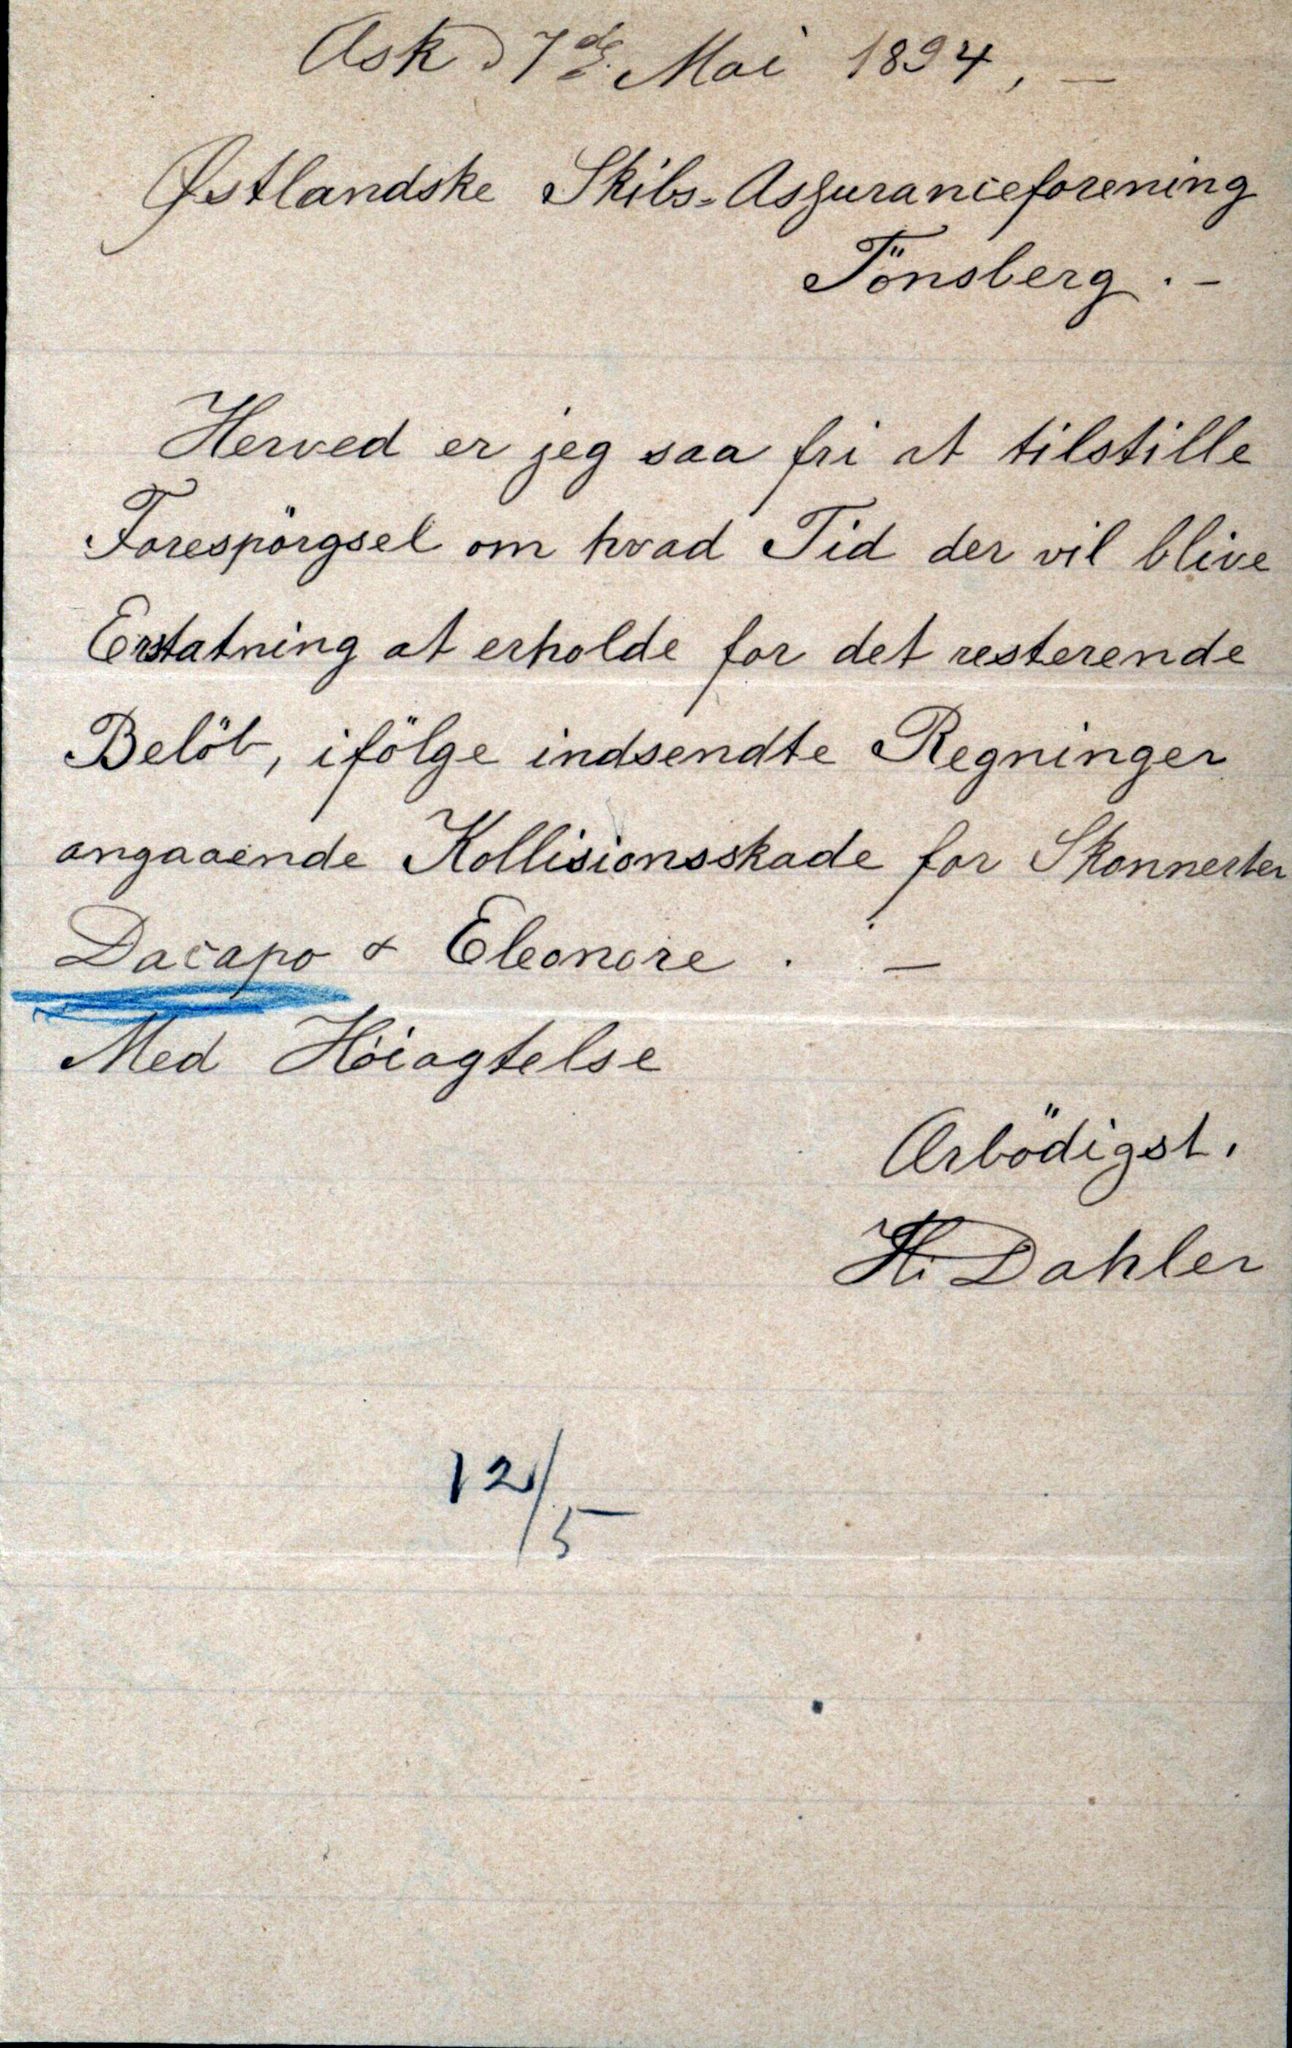 Ask d 7de Mai 1894, —
Østlandske Skibs-Assuranceforening
Tönsberg. –
Herved er jeg saa fri at tilstille
Forespörgsel om hvad Tid der vil blive
Erstatning at erholde for det resterende
Belöb, ifölge indsendte Regninger
angaaende Kollisionsskade for Skonnerter
Dacapo & Eleonore. —
Med Höiagtelse
Ærbödigst.
H. Dahler
12/5